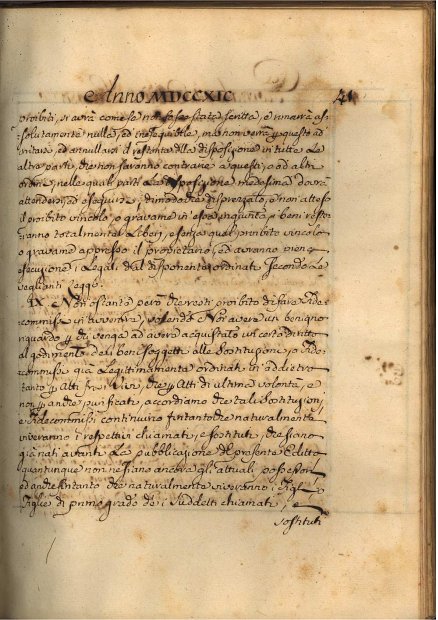 Anno MDCCXIC 41
proibiti, si avrà come se non fosse stata scritta, e rimarrà as-
solutamente nulla, ed ineseguibile, ma non verrà questo ad
irritare, ed annullare il restante della disposizione in tutte Le
altre parti, che non saranno contrarie a questi, o ad altri
ordini, nelle quali parti La disposizione medesima dovrà
attendersi, ed eseguirsi, dimodoché disprezzato, e non atteso
il proibito vincolo, o gravame in esse ingiunto i beni reste-
ranno totalmente Liberi, e senza quel proibito vincolo
o gravame appresso il proprietario, ed avranno piena
esecuzione i Legati dal disponente ordinati Secondo Le
seguenti
IX Non ostante però che resti proibito di fare Fide-
commissi in avvenire, volendo Noi avere un benigno
riguardo a chi venga ad avere acquistato un certo diritto
al godimento dei beni soggetti alle Sostituzioni, o Fide-
commissi già Legittimamente ordinati in addietro
tanto p Atti fra i Vivi, che p Atti di ultima volontà, e
non p anche purificati, accordiamo che tali Sostituzioni
e Fidecommissi continuino fintanto che naturalmente
viveranno i respettivi chiamati, e sostituti, che siano
già nati avanti La pubblicazione del presente Editto
quantunque non ne siano ancora gli attuali possessori
ed anche fintanto che naturalmente viveranno i Figli, e
Figlie di primo grado dei suddetti chiamati, e
sostituti